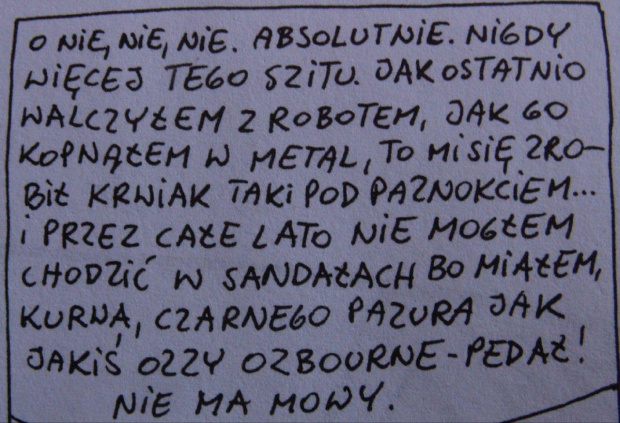 O NIE, NIE, NIE. ABSOLUTNIE. NIGDY
WIĘCEJ TEGO SZITU. JAK OSTATNIO
WALCZYŁEM Z ROBOTEM, JAK GO
KOPNĄŁEM W METAL, TO MI SIĘ ZRO-
BIŁ KRWIAK TAKI POD PAZNOKCIEM...
I PRZEZ CAŁE LATO NIE MOGŁEM
CHODZIĆ W SANDAŁACH BO MIAŁEM,
KURWA, CZARNEGO PAZURA JAK
JAKIŚ OZZY OZBOURNE-PEDAŁ!
NIE MA MOWY.